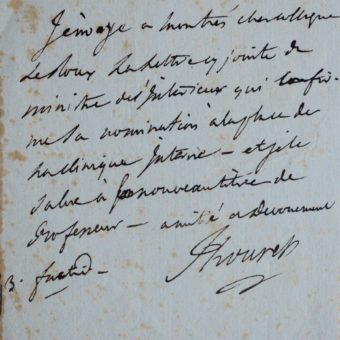 J'envoye a mon très cher collegue
Le Roux La Lettre cy jointe de
ministre de l'Interieur qui confir-
me Sa nomination à la place de
La clinique Interne - et je le
Salue à son nouveau titre de
Professeur - amitié et Devouement
Thouret
3.